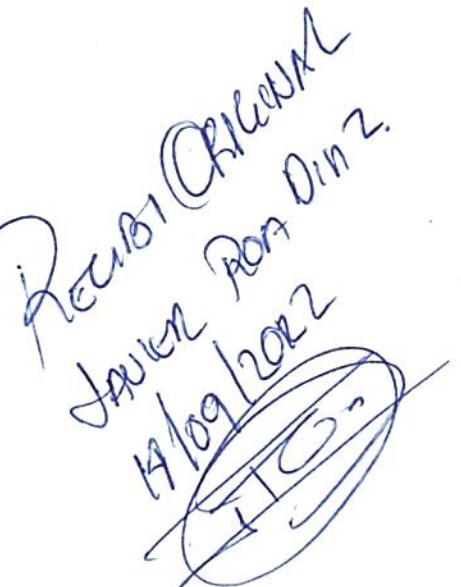 RECIBI ORIGINAL
JAVIER ROA DIAZ.
14/09/2022